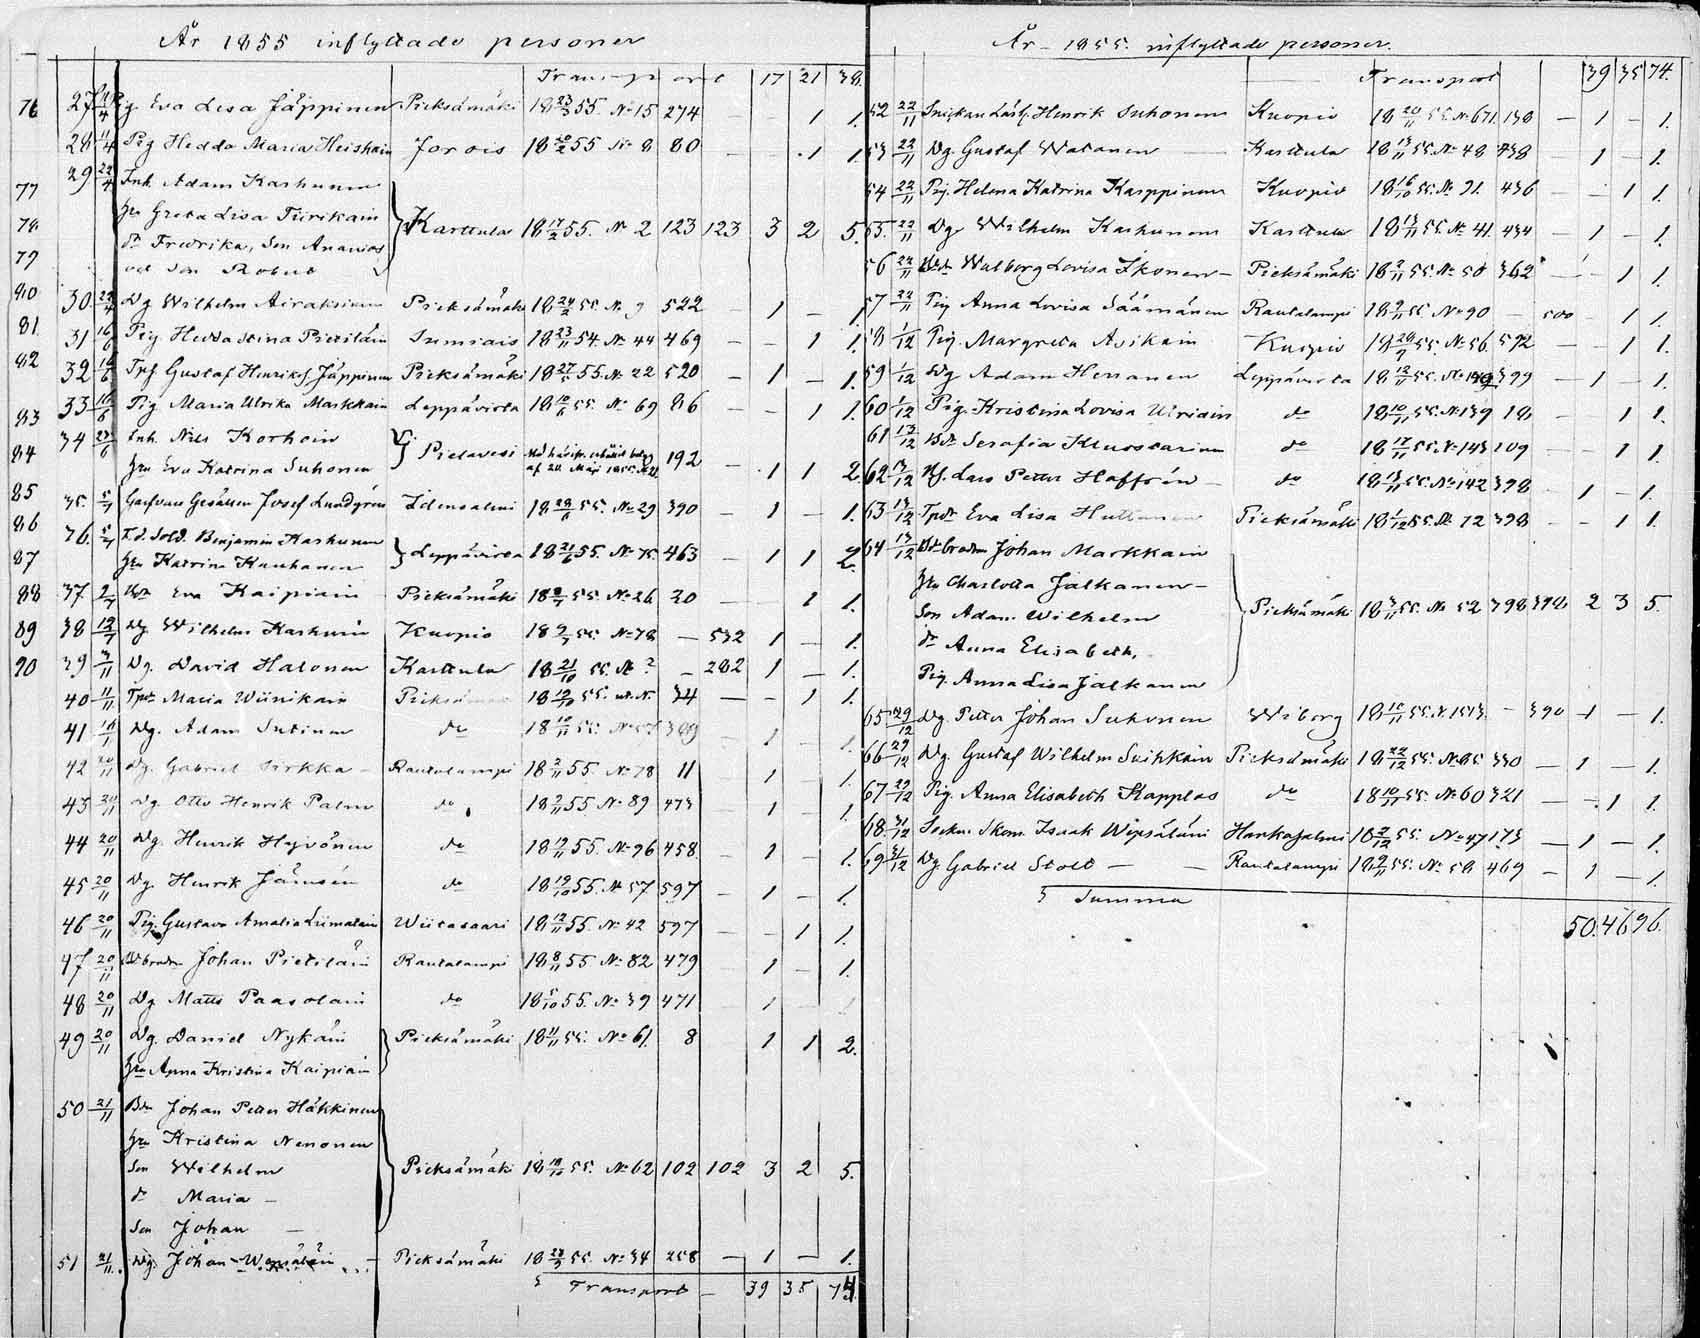 År 1855 inflyttade personer
Transport 17 21 38.
76 27 11/4 Pig Eva Lisa Jäppinen Pieksämäki 18 23/3 55. No 15 274 - - 1 1.
28 11/4 Pig Hedda Maria Heiskain Jorois 18 10/2 55 No 8 80 - - 1 1.
77 29 22/4 Inh. Adam Karhunen
78. hu Greta Lisa Tiirikain Karttula 18 17/2 55. No 2 123 123 3 2 5.
dr Fredrika, Son Ananias
79 och Son Robert
80 30 22/4 Dg Wilhelm Airaksinen Pieksämäki 18 24/2 55. No 9 522 - 1 - 1.
81. 31 16/6 Pig Hedda Stina Pietiläin Sumiais 18 23/11 54. No 44 469 - - 1 1.
82 32 16/6 Gustaf Henrikss. Jäppinen Pieksämäki 18 27/5 55. No 22 520 - 1 - 1.
83 33 16/6 Pig Maria Ulrika Markkain Leppävirta 18 10/6 55. No 69 86 - - 1 1.
34 23/6 Inh. Nils Korhoin
84 hu Eva Katrina Suhonen Pielavesi af 20 Maji 1855. 192 - 1 1 2
85 35. 5/7 Garfvare Gesällen Josef Lundgrén Idensalmi 18 28/6 55. No 29 390 - 1 - 1.
86 36. 5/7 F.d. Sold. Benjamin Karhunen
87 hu Katrina Kauhanen Leppävirta 18 21/6 55. No 75. 463 - 1 1 2.
88 37 2/7 Eva Kaipiain Pieksämäki 18 8/7 55. No 26. 20 - - 1 1.
89 38 12/7 Dg Wilhelm Karhuin Kuopio 18 9/7 55. No 78 - 532 1 - 1.
90 39 3/11 Dg. David Halonen Karttula 18 21/10 55. No ? - 282 1 - 1.
40 11/11 Maria Wiinikain Pieksämäki 18 19/10 55. ut. N. 34 - - 1 1.
41 Dg. Adam Sutinen do 18 10/11 55. - 1 - 1.
42 20/11 Dg. Gabriel Sirkka - Rautalampi 18 2/11 55. No 78 11 1 - 1.
43 20/11 Dg Otto Henrik Palm do 18 9/11 55 No 89 473 1 - 1.
44 20/11 Dg. Henrik Hyvönen do 18 9/11 55. No 96 458. - 1 - 1.
45 20/11 Dg. Henrik Jämsén do 18 19/10 55. No 57 597 - 1 - 1.
46 20/11 Pig. Gustava Amalia Liimatain Wiitasaari 18 12/11 55. No 42 597 - - 1 1.
47 20/11 Johan Pietiläin Rautalampi 18 8/11 55 No 82 479 - 1 - 1.
48 20/11 Dg Matts Paasolain do 18 5/10 55. No 39 471 - 1 1
49 20/11 Dg. Daniel Nykäin Pieksämäki 18 11/11 55. No 61. 8 1 1 2.
hu Anna Kristina Kaipiain
50 21/11 Bdn Johan Petter Häkkinen
hu Kristina Nenonen
Son Wilhelm Pieksämäki 18 18/10 55. No 62 102 102 3 2 5.
dr Maria -
Son Johan -
51 21/11. Dg. Johan Pieksämäki 18 55. No 34 258 - 1 - 1.
Transport - 39 35 74.
År 1855. inflyttade personer.
Transport 39 35 74.
52 22/11 Henrik Suhonen Kuopio 18 20/11 55. No 671. 138 - 1 - 1.
53 22/11 Dg. Gustaf Watanen Karttula 18 13/11 55. No 48 438 - 1 - 1.
54 22/11 Pig. Helena Katrina Karppinen Kuopio 18 16/10 55. No 91. 436 - - 1 1.
55. 22/11 Dg Wilhelm Karhunen Karttula 18 13/11 55. No 41. 434 - 1 - 1.
56 22/11 Walborg Lovisa Ikonen - Pieksämäki 18 2/11 55. No 50 362 - 1 1.
57 22/11 Pig Anna Lovisa Säämänen Rautalampi 18 9/11 55 No 90 - 500 - 1 1.
58 1/12 Pig. Margreta Asikain Kuopio 18 28/7 55. No 56. 592 - 1 1.
59 1/12 Dg Adam Heranen Leppävirta 18 12/11 55. 399 - 1 - 1.
60 1/12 Pig. Kristina Lovisa Uriain do 18 10/11 55. No 139 18. - 1 1.
61 13/12 Serafia Kluostarin do 18 17/11 55. No 143 109 - - 1 1.
62 13/12 Lars Petter Haffrén - do 18 13/11 55. No 142 398 - 1 - 1.
63 13/12 Eva Lisa Huttunen Pieksämäki 18 1/12 55 No 72 398 - - 1 1.
64 13/12 Johan Markkain
hu Charlotta Jalkanen -
Son Adam Wilhelm Pieksämäki 18 3/11 55. No 52 398 398 2 3 5.
dr Anna Elisabeth.
Pig. Anna Lisa Jalkanen
65 29/12 Dg. Petter Johan Suhonen Wiborg 18 10/11 55. N. 1513. - 390 1 - 1.
66 29/12 Dg. Gustaf Wilhelm Suihkoin Pieksämäki 18 22/12 55. No 85 330 - 1 - 1.
67 29/12 Pig. Anna Elisabeth Kapplas do 18 10/11 55. No 60 321 - - 1 1.
68 31/12 Sockn. Skom. Isaak Wepsäläin Hankasalmi 18 2/12 55. No 47 173 - 1 - 1.
69 31/12 Dg. Gabriel Stolt - - Rautalampi 18 9/11 55. No 58 469 - 1 - 1.
Summa
50. 46 96.